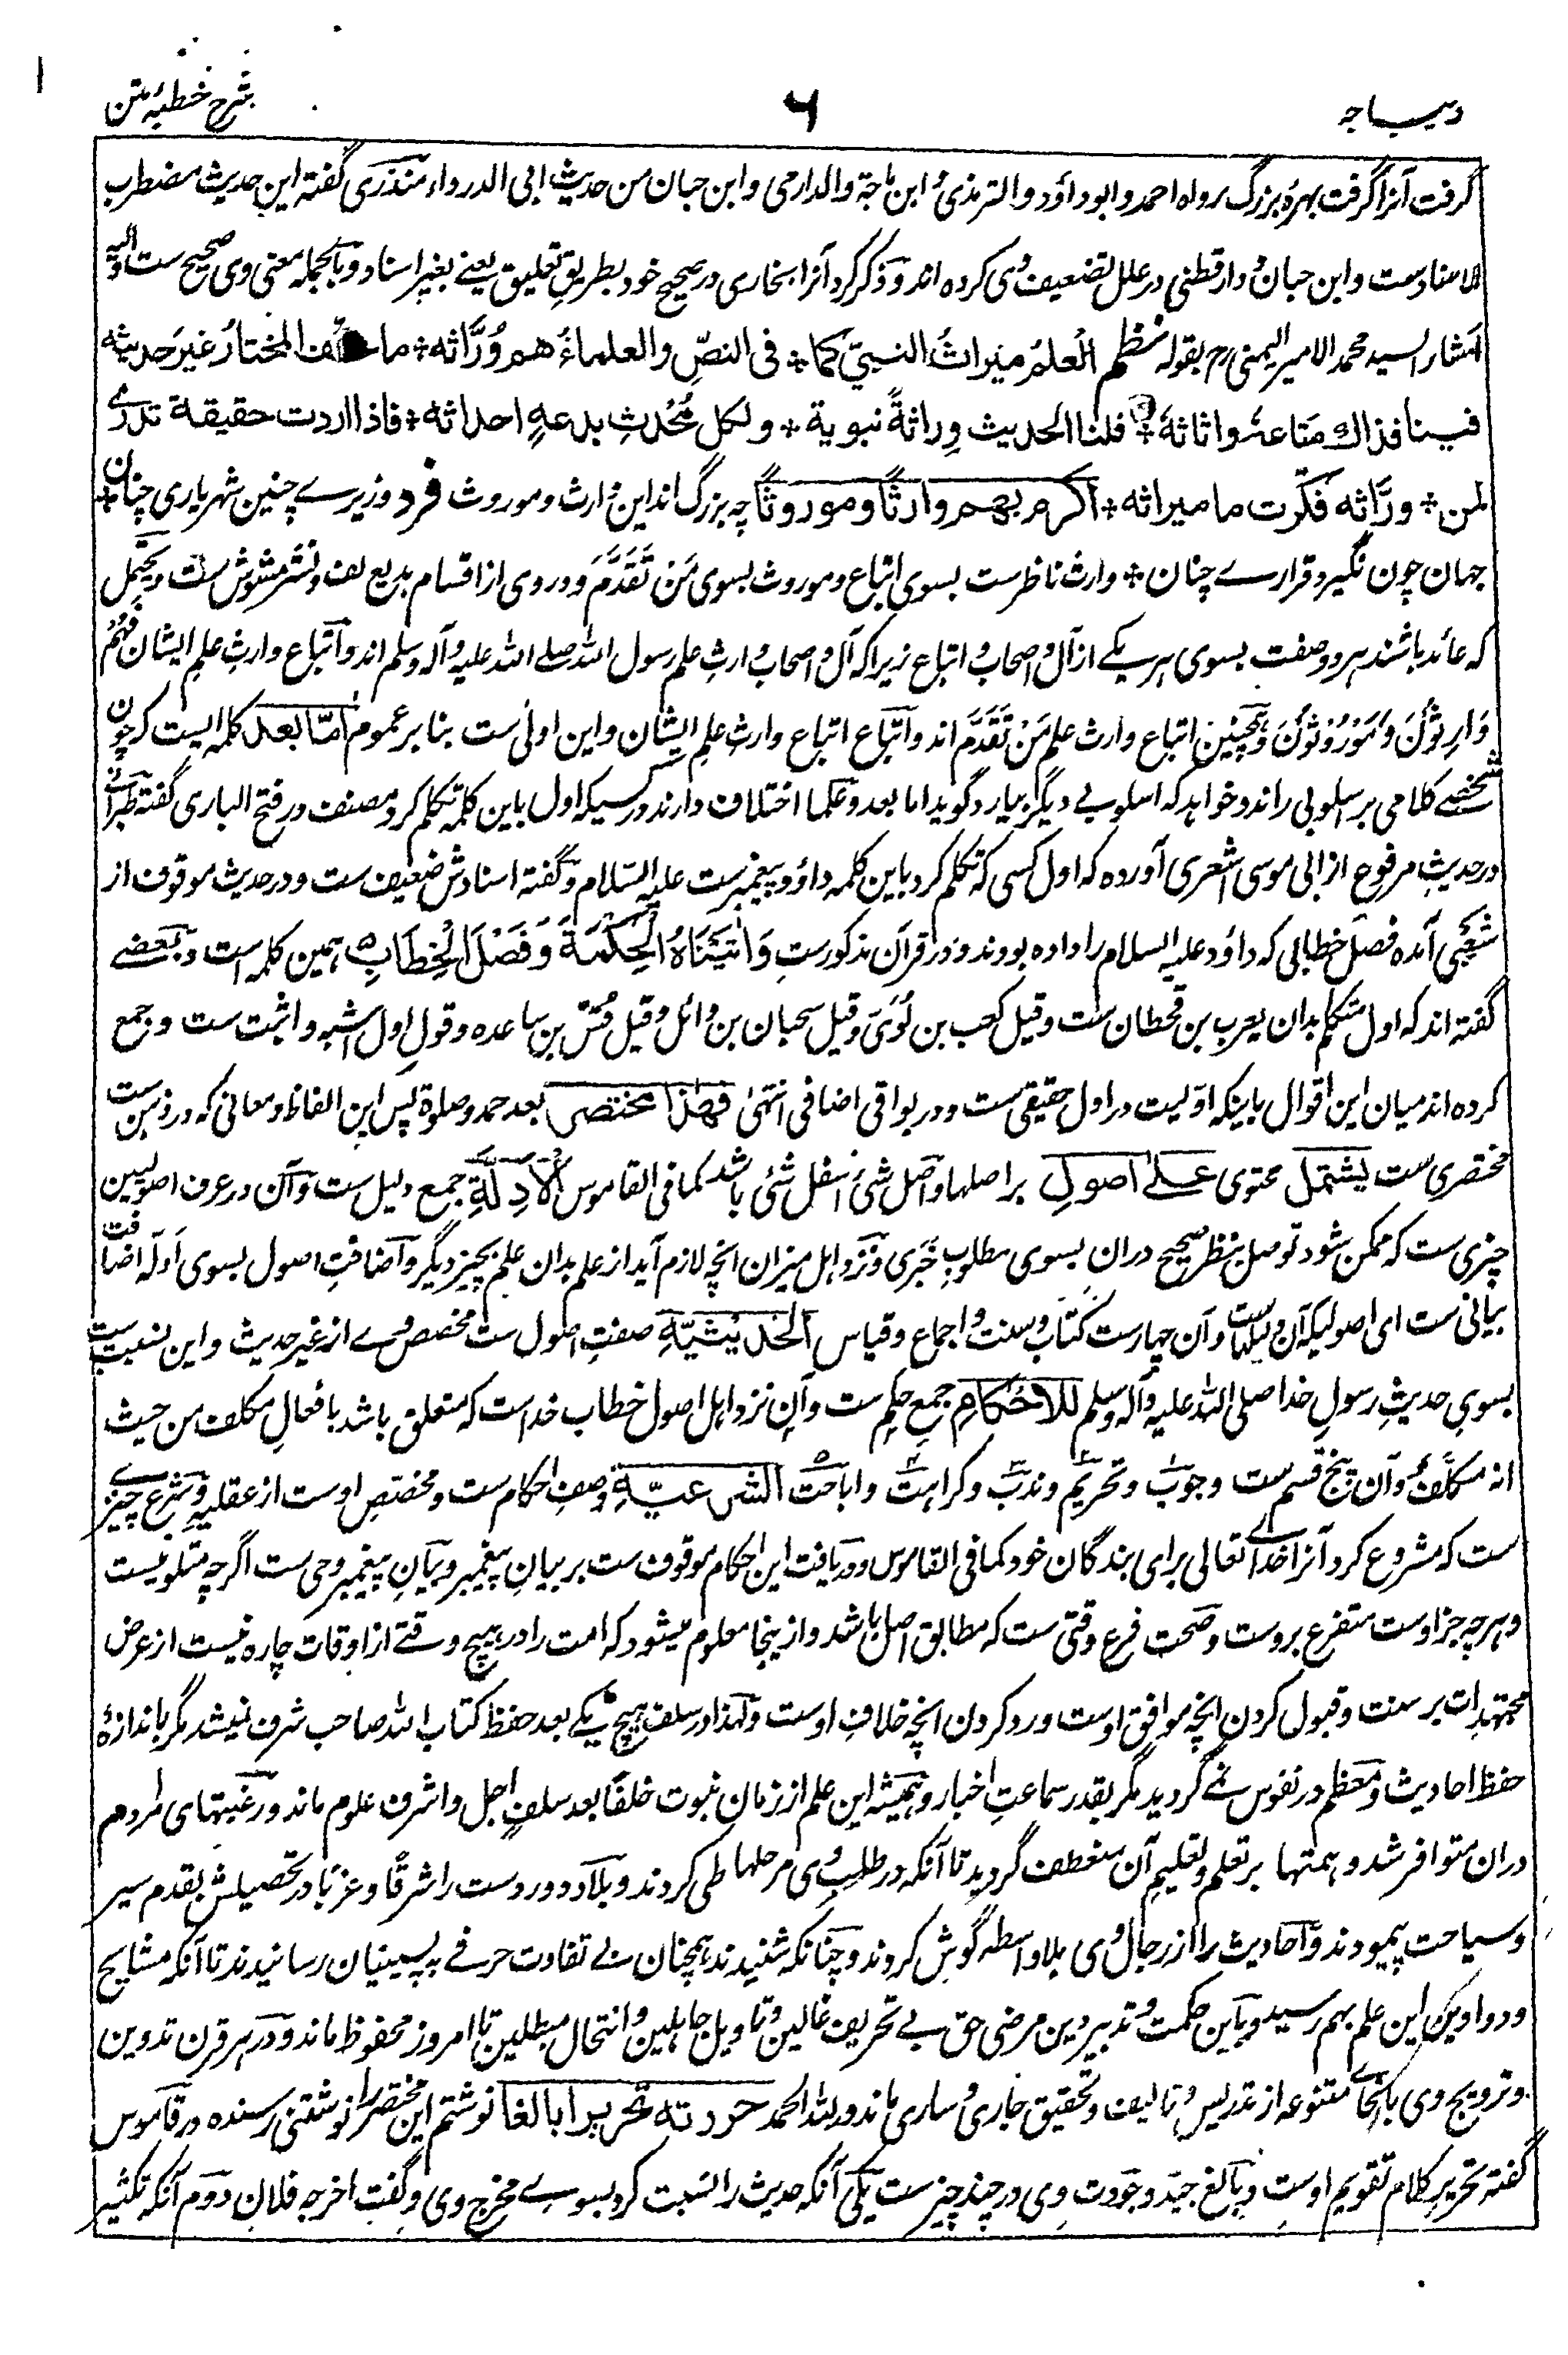 دیباجه
۶
شرح خطبهٔ متن
گرفت آنرا گرفت بهرهٔ بزرگ رواه احمد و ابوداؤد و الترمذی و ابن ماجة والدارمی و ابن حبان من حدیث ابی الدرداء منذری گفته این حدیث مضطرب
الاسناد ست و ابن حبان و دارقطنی در علل تضعیف وی کرده اند و ذکر کرد آنرا بخاری در صحیح خود بطریق تعلیق یعنے بغیر اسناد و بالجمله معنی وی صحیح ست و الیه
اشار السید محمد الامیر الیمنی رح بقوله نظم العلم میراث النبیّ کما * فی النصّ والعلماءُ هم وُرَّاثه * ما المختارُ غیرَ حدیثه
فینا فذاك متاعه واثاثه * فلنا الحدیث وِراثةً نبویة * ولکل مُحْدِثِ بدعةٍ احداثه * فاذا اردت حقیقة تدرے
لمن * ورَّاثه فکّرت ما میراثه * اکرم بهم وارثًا وموروثًا چه بزرگ اند این وارث و موروث فرد وزیرے چنین شهریاری چنان *
جهان چون نگیرد قرارے چنان * وارث ناظر ست بسوی اتباع و موروث بسوی مَن تَقَدَّمَ و در وی از اقسام بدیع لف و نشر مشوش ست و یحتمل
که عائد باشند هر دو صفت بسوی هر یکے از آل و اصحاب و اتباع زیرا که آل و اصحاب وارثِ علم رسول الله صلے الله علیه و آله وسلم اند و اتباع وارثِ علم ایشان فَهُمْ
وَارِثُوْنَ وَمَوْرُوْثُوْنَ و همچنین اتباع وارث علم مَنْ تَقَدَّمَ اند و اتباع اتباع وارثِ علم ایشان و این اولیٰ ست بنا بر عموم امّا بعد کلمه ایست که چون
شخصے کلامی بر اسلوبی راند و خواهد که اسلوبے دیگر بیارد گوید اما بعد و علما اختلاف دارند در کسیکه اول باین کلمه تکلم کرد مصنف در فتح الباری گفته طبرانے
در حدیثِ مرفوع از ابی موسی اشعری آورده که اول کسی که تکلم کرد باین کلمه داؤد پیغمبر ست علیه السّلام و گفته اسنادش ضعیف ست و در حدیث موقوف از
شعبی آمده فصل خطابی که داؤد علیه السلام را داده بودند و در قرآن مذکور ست وَاٰتَیْنَاهُ الْحِکْمَةَ وَفَصْلَ الْخِطَابِ همین کلمه است و بعضے
گفته اند که اول متکلم بدان یعرب بن قحطان ست و قیل کعب بن لُوَیّ و قیل سحبان بن وائل و قیل قُسّ بن ساعده و قولِ اول اشبه و اثبت ست و جمع
کرده اند میان این اقوال باینکه اوّلیت در اول حقیقی ست و در بواقی اضافی انتهیٰ فهٰذا مختصر بعد حمد و صلوة پس این الفاظ و معانی که در ذهن ست
مختصری ست یشتمل محتوی علے اصولِ بر اصلها و اصل شیٔ اسفل شیٔ باشد کما فی القاموس الْاَدِلَّةِ جمع دلیل ست و آن در عرف اصولیین
چیزی ست که ممکن شود توصل بنظر صحیح دران بسوی مطلوبِ خَبَری و نزد اهل میزان انچه لازم آید از علم بدان علم بچیز دیگر و اضافتِ اصول بسوی ادلّه اضافت
بیانی ست ای اصولیکه آن دلیلهاست و آن چهار ست کتاب و سنت و اجماع و قیاس الحدیثیّةِ صفتِ اصول ست مخصص وے از غیر حدیث و این نسبت ست
بسوی حدیثِ رسولِ خدا صلی الله علیه و آله وسلم للاحکام جمع حکم ست و آن نزد اهل اصول خطاب خداست که متعلق باشد بافعالِ مکلف من حیث
انه مکلّف و آن پنج قسم ست وجوب و تحریم و ندب و کراهت و اباحت الشرعیّةِ وصفِ احکام ست و مختص اوست از عقلیه و شرع چیزے
ست که مشروع کرد آنرا خدای تعالی برای بندگان خود کما فی القاموس و دریافت این احکام موقوف ست بر بیانِ پیغمبر و بیانِ پیغمبر وحی ست اگرچه متلو نیست
و هرچه جز اوست متفرع بروست و صحت فرع وقتی ست که مطابق اصل باشد و ازینجا معلوم میشود که امت را در هیچ وقتے از اوقات چاره نیست از عرض
مجتهدات بر سنت و قبول کردن انچه موافق اوست و رد کردن انچه خلافِ اوست و لهذا در سلف هیچ یکے بعد حفظ کتاب الله صاحب شرف نمیشد مگر باندازهٔ
حفظ احادیث و معظم در نفوس نمے گردید مگر بقدر سماعتِ اخبار و همیشه این علم از زمانِ نبوت خلفًا بعد سلفٍ اجل و اشرف علوم ماند و رغبتهای مردم
دران متوافر شد و همتها بر تعلم و تعلیم آن منعطف گردید تا آنکه در طلبِ وی مرحلها طی کردند و بلاد دور دست را شرقًا و غربًا در تحصیلش بقدم سیر
و سیاحت پیمودند و احادیث را از رجال وی بلاواسطه گوش کردند و چنانکه شنیدند همچنان بے تفاوت حرفے به پسینیان رسانیدند تا آنکه مشایخ
و دواوین این علم بهم رسید و باین حکمت و تدبیر دین مرضی حق بے تحریف غالین و تاویل جاهلین و انتحال مبطلین تا امروز محفوظ ماند و در هر قرن تدوین
و ترویج وی بانحاے متنوعه از تدریس و تالیف و تحقیق جاری و ساری ماند و لله الحمد حررته تحریرا بالغا نوشتم این مختصر را نوشتنی رسنده در قاموس
گفته تحریرِ کلام تقویم اوست و بالغ جید و جودت وی در چند چیز ست یکی آنکه حدیث را نسبت کرد بسوے مخرج وی و گفت اخرجه فلان دوم آنکه تکثیر